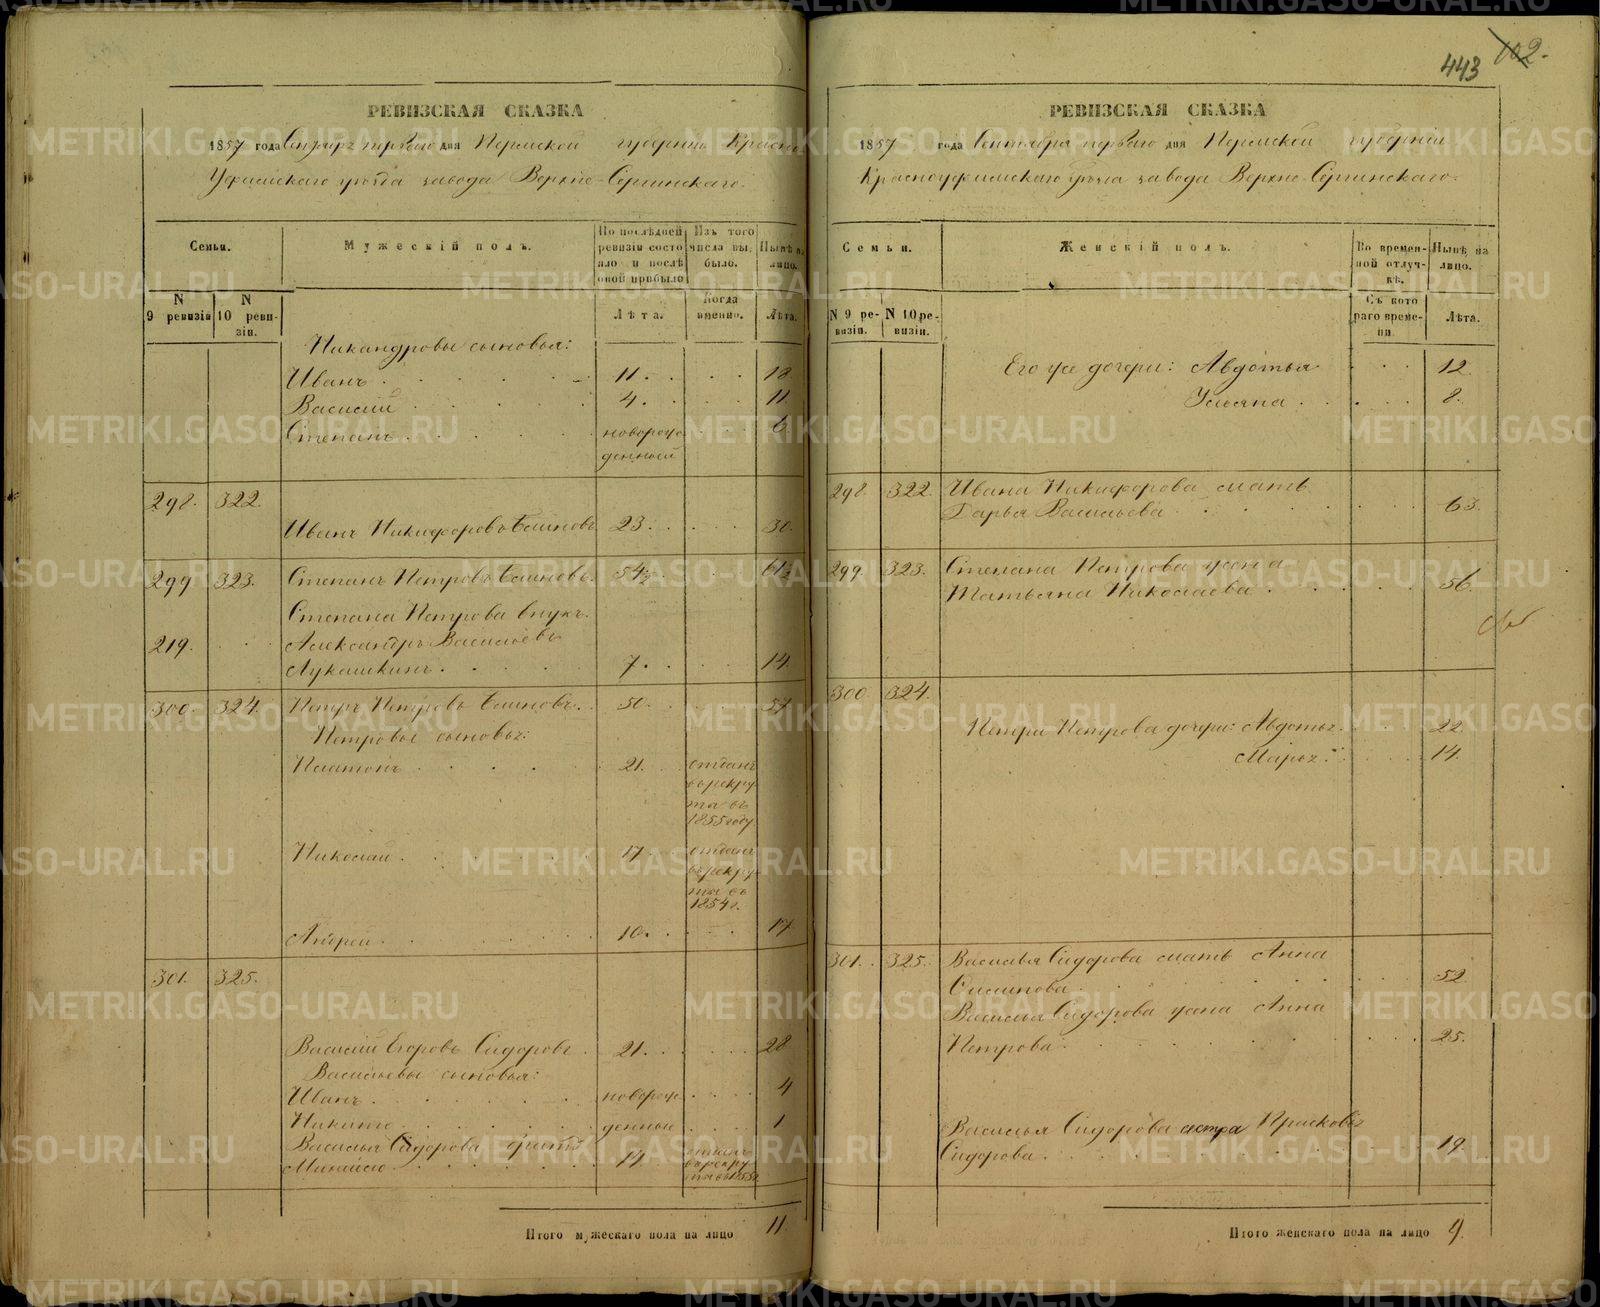 443 102.
РЕВИЗСКАЯ СКАЗКА
1857 года Сентября первого дня Пермской губернии Красно-
Уфимскаго уѣзда завода Верхне-Сергинскаго.
Семьи.
Мужескій полъ.
По послѣдней ревизіи состояло и послѣ оной прибыло
Изъ того числа выбыло.
Нынѣ на лицо.
N 9 ревизіи
N 10 ревизіи.
Лѣта.
Когда именно.
Лѣта.
Никандровы сыновья:
Иванъ 11. 18
Василій 4. 11
Степанъ новорож- 6.
денный
298. 322.
Иванъ Никифоровъ 23. 30.
299 323. Степанъ Петровъ 54. 61.
Степана Петрова внукъ
219. Александръ Васильевъ
Лукашкинъ. 7. 14.
300. 324. Петръ Петровъ 50. 57
Петровы сыновья:
Платонъ 21. отданъ
въ рекру-
ты въ
1855 году
Николай. 17. отданъ
въ рекру-
ты въ
1854 г.
Андрей 10. 17
301. 325.
Василій Егоровъ Сидоровъ 21. 28
Васильевы сыновья:
Иванъ новорож- 4
Никита денные 1
Василья Сидорова братъ
14 отданъ
въ рекру-
ты въ 1855
Итого мужескаго пола на лицо 11.
РЕВИЗСКАЯ СКАЗКА
1857 года Сентября первого дня Пермской губерніи
Красноуфимскаго уѣзда завода Верхне-Сергинскаго.
Семьи.
Женскій полъ.
Во временной отлучкѣ.
Нынѣ на лицо.
N 9 ревизіи.
N 10 ревизіи.
Съ котораго времени.
Лѣта.
Его же дочери: Авдотья 12.
Ульяна 8.
298. 322. Ивана Никифорова мать
Дарья Васильева 63.
299 323. Степана Петрова жена
Татьяна Николаева 56.
300 324.
Петра Петрова дочери: Авдотья 22
Марья 14.
301. 325. Василья Сидорова мать Анна
52
Василья Сидорова жена Анна
Петрова 25.
Василья Сидорова сестра Прасковья
Сидорова 19.
Итого женскаго пола на лицо 9.
METRIKI.GASO-URAL.RU